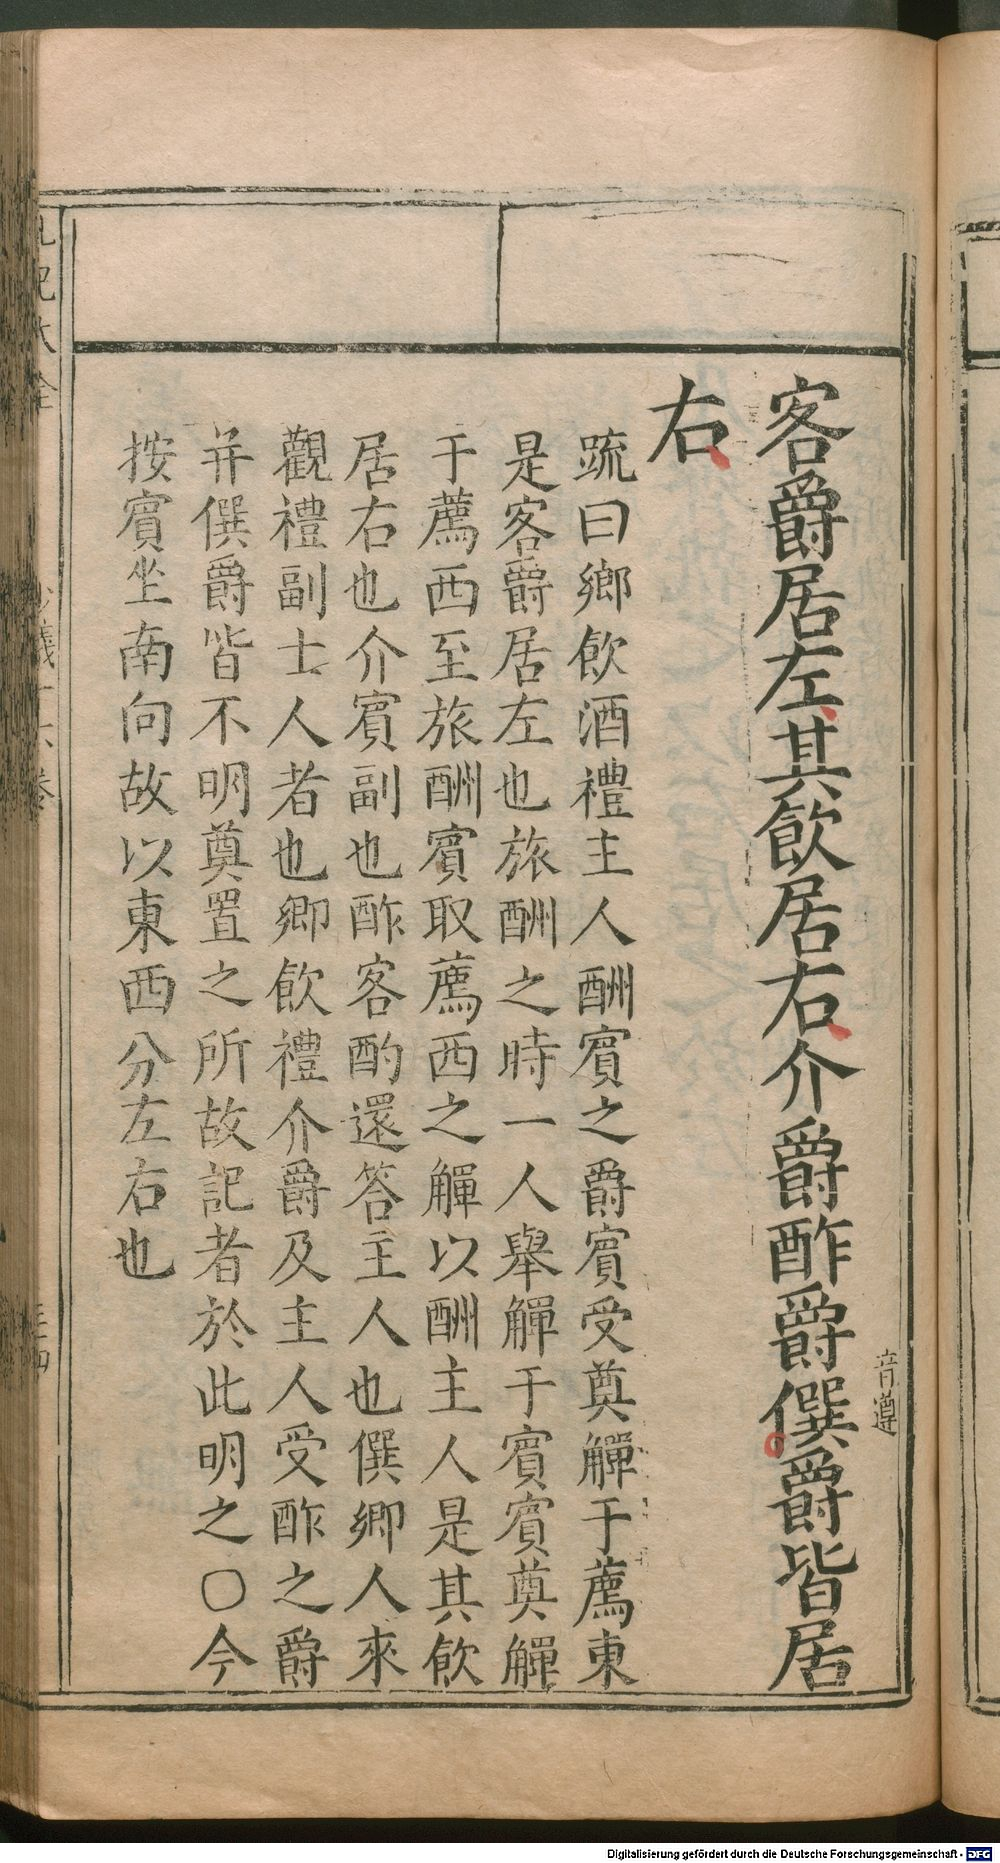 客爵居左其飲居右介爵酢爵僎爵皆居
音遵
右
疏曰鄉飲酒禮主人酬賓之爵賓受奠觶于薦東
是客爵居左也旅酬之時一人舉觶于賓賓奠觶
于薦西至旅酬賓取薦西之觶以酬主人是其飲
居右也介賓副也酢客酌還答主人也僎鄉人來
觀禮副士人者也鄉飲禮介爵及主人受酢之爵
并僎爵皆不明奠置之所故記者於此明之〇今
按賓坐南向故以東西分左右也
Digitalisierung gefördert durch die Deutsche Forschungsgemeinschaft - DFG